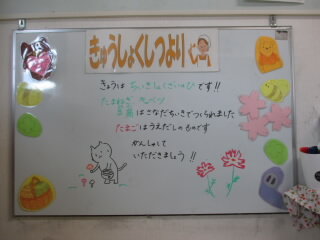 きゅうしょくしつより
きょうは ちいきしょくざいのひ です!!
たまねぎ キャベツ
豆腐 はさなだちいきでつくられました
たまごはうえだしのものです
かんしゃして
いただきましょう!!